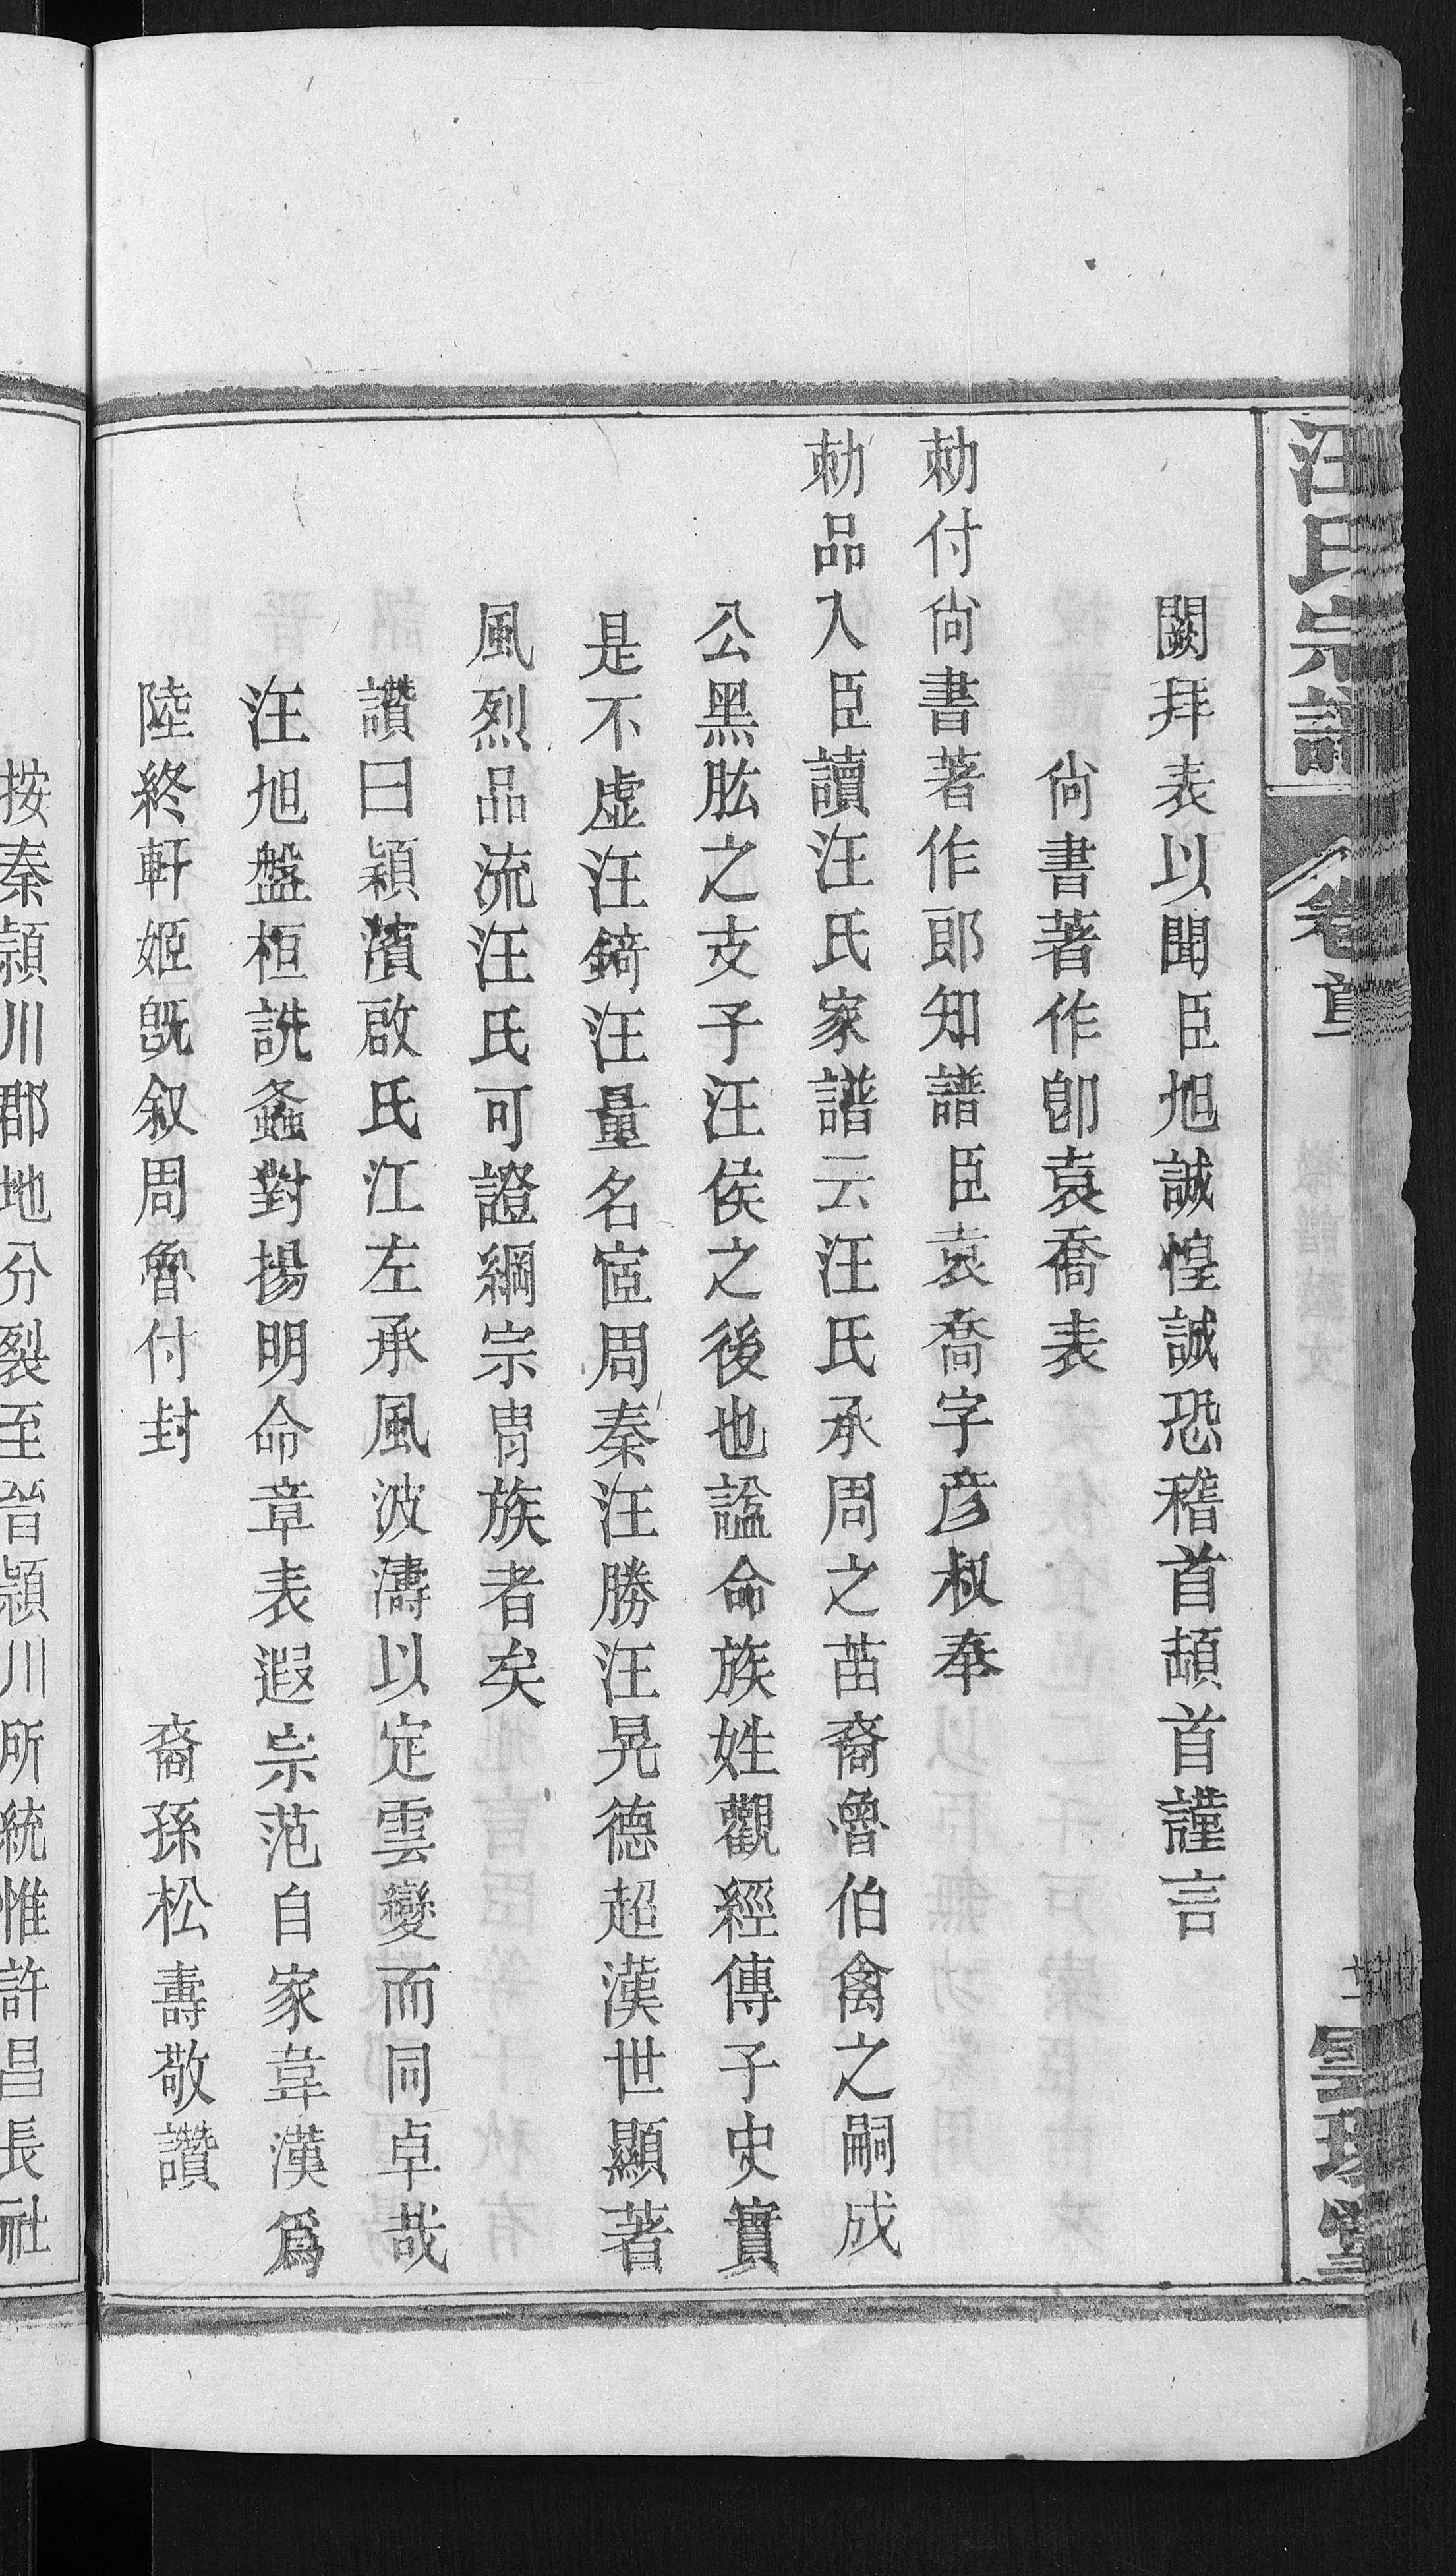 汪氏宗譜
卷首
闕拜表以聞臣旭誠惶誠恐稽首頓首謹言
尙書著作卽袁喬表
勅付尙書著作郎知譜臣袁喬字彦叔奉
勅品入臣讀汪氏家譜云汪氏承周之苗裔魯伯禽之嗣成
公黑肱之支子汪侯之後也諡命族姓觀經傳子史實
是不虚汪錡汪量名宦周秦汪勝汪晃德超漢世顯著
風烈品流汪氏可證綱宗胄族者矣
讚曰潁濱啟氏江左承風波濤以定雲變而同卓哉
汪旭盤桓詵螽對揚明命章表遐宗范自家韋漢爲
陸終軒姬旣叙周魯付封 裔孫松壽敬讚
按秦潁川郡地分裂至晉潁川所統惟許昌長社